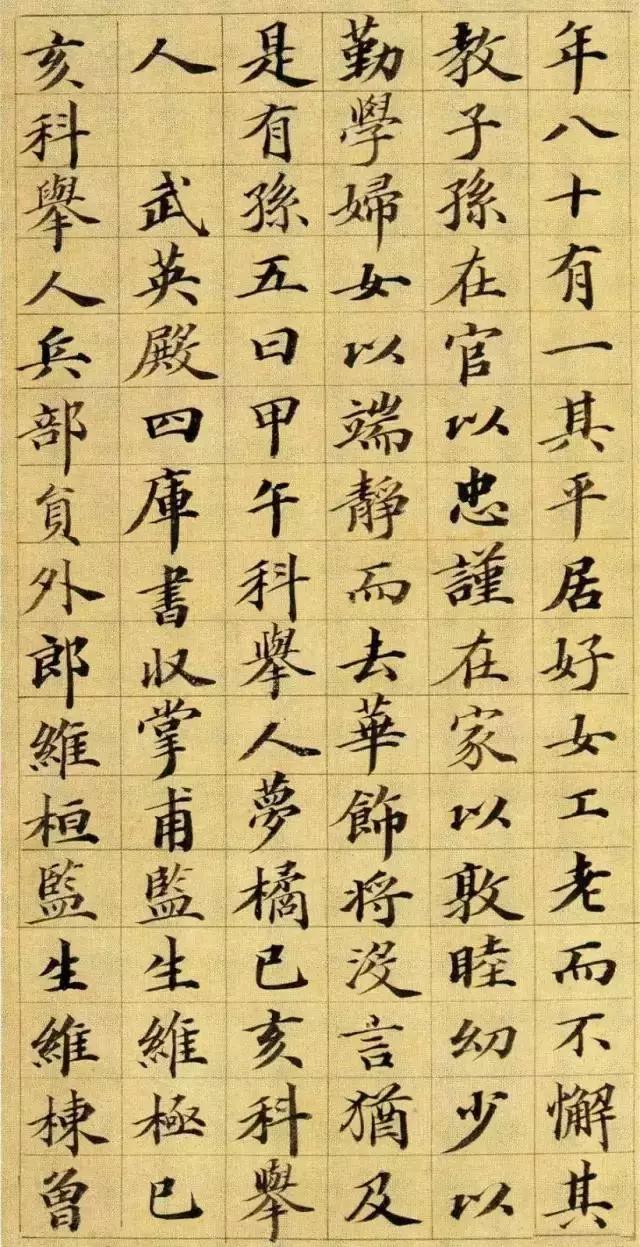 年八十有一其平居好女工老而不懈其
教子孫在官以忠謹在家以敦睦幼少以
勤學婦女以端靜而去華飾将没言猶及
是有孫五曰甲午科舉人夢橘已亥科舉
人武英殿四庫書収掌甫監生維極已
亥科舉人兵部負外郎維桓監生維棟曾